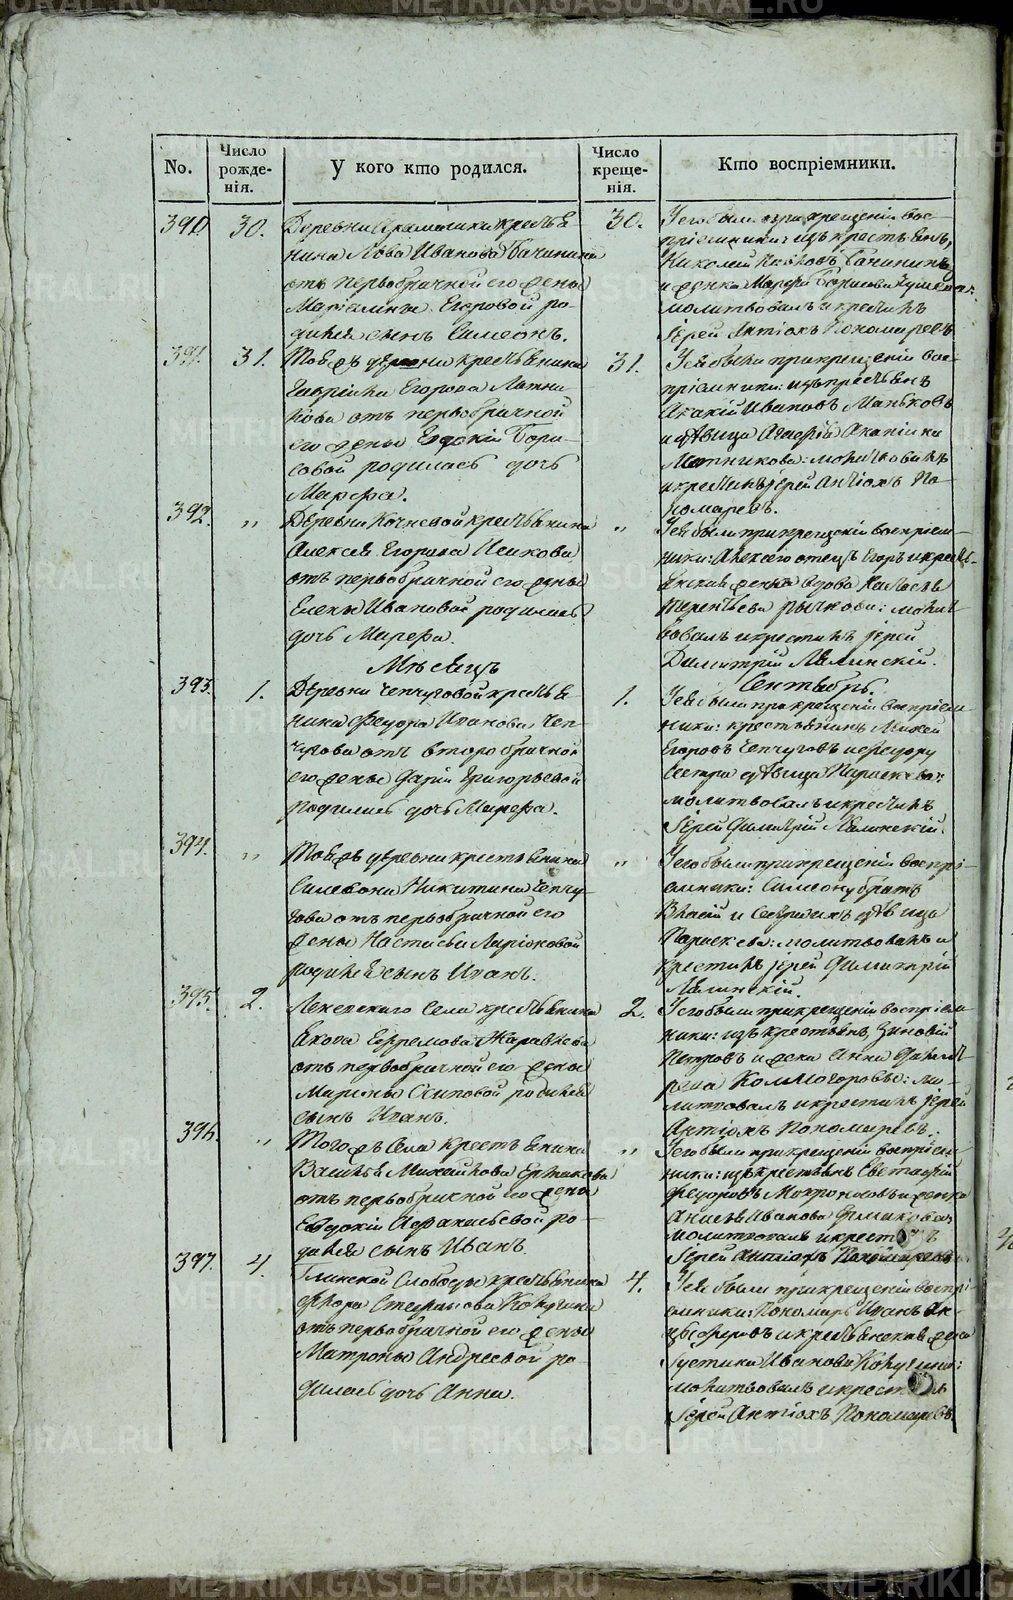 METRIKI.GASO-URAL.RU
No.
Число рожде-нія.
У кого кто родился.
Число креще-нія.
Кто воспріемники.
390. 30.
Деревни крестья-
нина Іова Иванова Бачинина
отъ первобрачной его жены
Маріамны Егоровой ро-
дился сынъ Симеонъ.
30.
У него были при крещеніи вос-
пріемники: изъ крестьянъ,
Николай Бачининъ
и женка Марфа Борисова
молитвовалъ и крестилъ
Іерей Антіохъ Пономаревъ
391. 31.
Тояжъ деревни крестьянина
Гавріила Егорова Матни-
кова отъ первобрачной
его жены Евдокіи Бори-
совой родилась дочь
Марфа.
31.
У ея были при крещеніи вос-
пріемники: изъ крестьянъ
Акакій Ивановъ Маньковъ
и дѣвица Агафія Акакіева
Мятникова: молитвовалъ
и крестилъ Іерей Антіохъ По-
номаревъ.
392. "
Деревни Кочневой крестьянина
Алексея Егорова
отъ первобрачной его жены
Елены Ивановой родилась
дочь Марфа.
"
У ея были при крещеніи воспріем-
ники: Алексею отецъ Егоръ и кресть-
янская женка
Терентьева Рычкова: молит-
вовалъ и крестилъ Іерей
Димитрій Лялинскій.
Мѣсяцъ
Сентябрь.
393. 1.
Деревни Чепчуговой крестья-
нина Федора Иванова Чеп-
чугова отъ второбрачной
его жены Дарьи Григорьевой
родилась дочь Марфа.
1.
У ея были при крещеніи воспріем-
ники: крестьянинъ
Егоровъ Чепчуговъ и Федору
сестра дѣвица Параскева:
молитвовалъ и крестилъ
Іерей Димитрій Лялинскій.
394. "
Тояжъ деревни крестьянина
Симеона Никитина Чепчу-
гова отъ первобрачной его
жены Настасьи Ларіоновой
родился сынъ Иванъ.
"
У него были при крещеніи воспрі-
емники: Симеону братъ
и дѣвица
Параскева: молитвовалъ и
крестилъ Іерей Димитрій
Лялинскій.
395. 2.
Леневскаго Села крестьянина
Якова Ефремова Журавлева
отъ первобрачной его жены
Марины Осиповой родился
сынъ Иванъ.
2.
У него были при крещеніи воспріем-
ники: изъ крестьянъ, Зиновій
Петровъ и жена Анна
Колмогоровы: мо-
литвовалъ и крестилъ Іерей
Антіохъ Пономаревъ.
396. "
Того жъ Села крестьянина
Василья Михайлова Ермакова
отъ первобрачной его жены
Евдокіи Афанасьевой ро-
дился сынъ Иванъ.
"
У него были при крещеніи воспріем-
ники: изъ крестьянъ
Федоровъ Мокроносовъ и женка
Анисья Иванова Ермакова:
молитвовалъ и крестилъ
Іерей Антіохъ Пономаревъ.
397. 4.
Глинской Слободы крестьянина
Флора Стефанова Кокшина
отъ первобрачной его жены
Матроны Андреевой ро-
дилась дочь Анна.
4.
У ея были при крещеніи воспрі-
емники: Пономарь Иванъ
и крестьянская жена
Густинья Иванова
молитвовалъ и крестилъ
Іерей Антіохъ Пономаревъ.